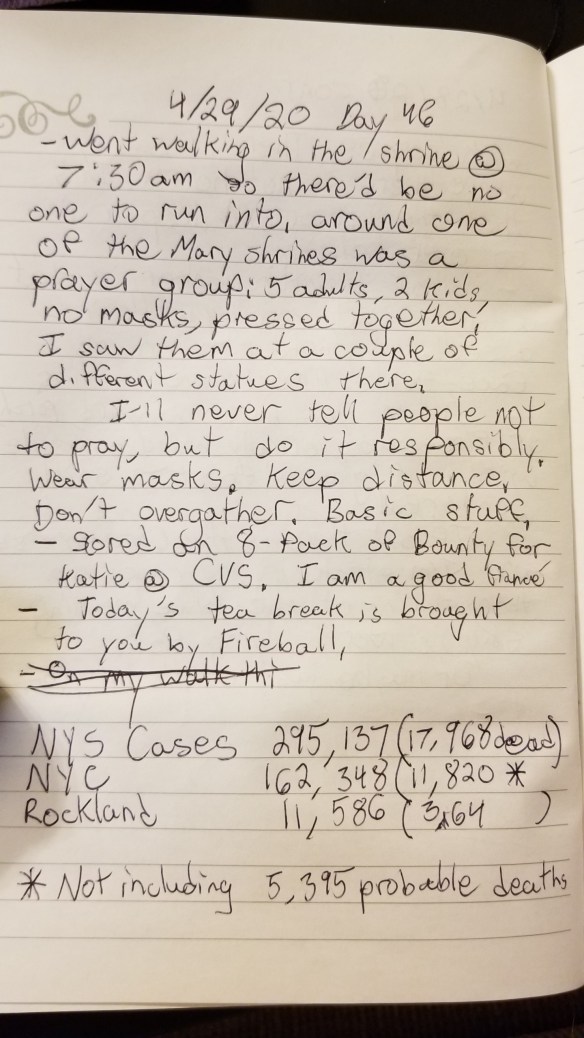 4/29/20 Day 46
- Went walking in the shrine @
7:30am so there'd be no
one to run into, around one
of the Mary shrines was a
prayer group: 5 adults, 2 kids,
no masks, pressed together,
I saw them at a couple of
different statues there.
I'll never tell people not
to pray, but do it responsibly.
Wear masks. Keep distance.
Don't overgather. Basic stuff.
- Scored an 8-Pack of Bounty for
Katie @ CVS. I am a good fiancé
- Today's tea break is brought
to you by Fireball,
- On my walk thi
NYS Cases 295,137 (17,968 dead)
NYC 162,348 (11,820 *
Rockland 11,586 (364 )
* Not including 5,395 probable deaths